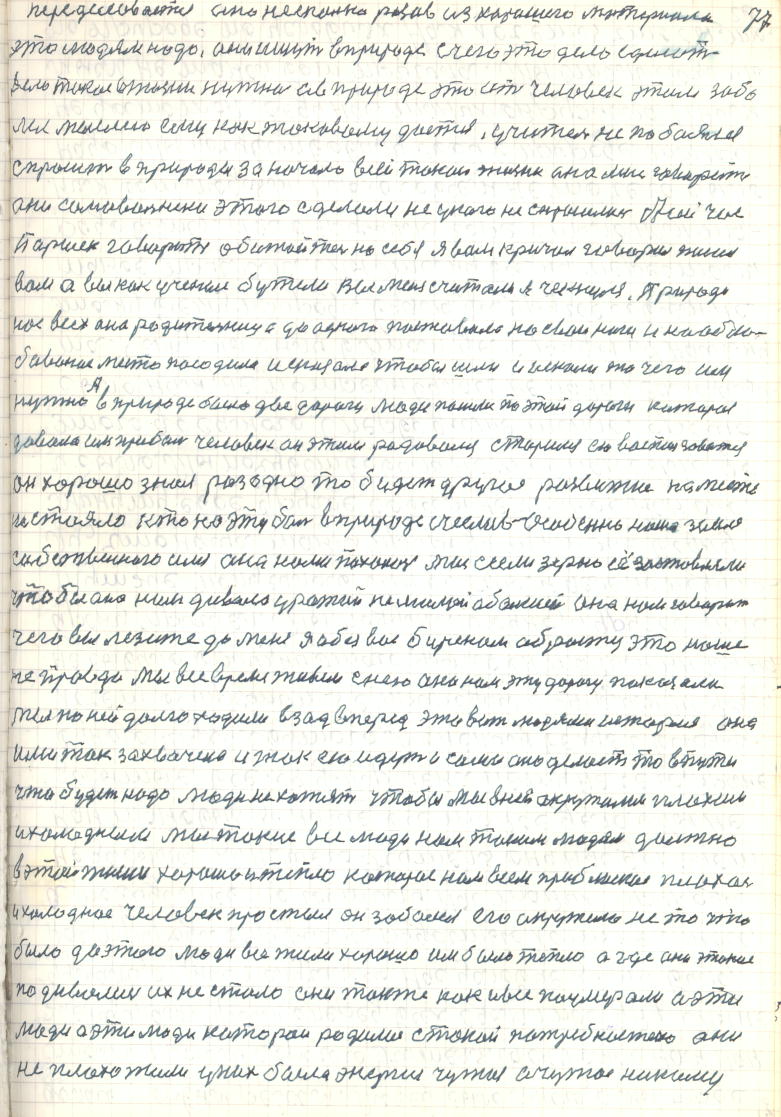 переделовается оно несколько разов из хорошего материала 77
это людям надо. они ищут в природе с чего это дело сделать
дело такое в жизни нужна а в природе это ить человек этим забо
лел тяжело ему как таковому дается. учится не по боялся
спросить в природы за начало всей такой жизни она мне говорить
они самовольники этого сделали не у кого не спросились
Паршек говорить обитайтеся на себя я вам кричал говорил писал
вам а вы как ученые бутели вы меня считали я чекнулся. Природа
нас всех она родительница до одного поставила на свои ноги и на обло-
бованое место посадила и сказала чтобы шли и искали то чего им
нужно А в природе было две дороги люди пошли по этой дороги которая
давала им прибыл человек он этим радовался старился ею воспользоватся
он хорошо знал раз одно то будет другое развитие на месте
не стояло кто на эту был в природе счеслив Особенно наша земля
собственного имя она нами пахоная мы сеяли зерно её заставляли
чтобы она нам давала урожай не малый абажией она нам говорит
чего вы лезите до меня я без вас буряном обросту это наше
не правда мы все время живем с нею она нам эту дорогу показали
мы по ней долго ходили взад вперед это вот людями история она
ими так захвачена и так ею идуть и сами оно делають то в пути
что будет надо люди не хотят чтобы мы в ней окружали плохим
и холодным мы такие все люди нам таким людям должно
в этой жизни хорошо и тепло которое нам всем приблизило плохое
и холодное человек простыл он заболел его окружило не то что
было до этого люди все жили хорошо им было тепло а где они такие
подивались их не стало они также как и все поумерали а эти
люди а эти люди которои родилися с такой потребностею они
не плохо жили у них была энергия чужая а чужое никому